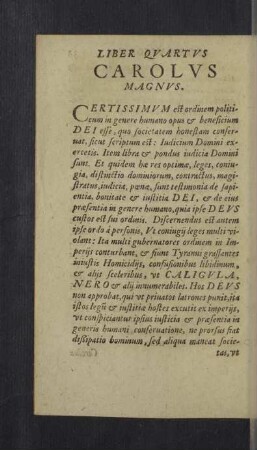 LIBER QVARTVS
CAROLVS
MAGNVS.
CERTISSIMVM est ordinem politi-
cum in genere humano opus & beneficium
DEI esse, quo societatem honestam conser-
uat, sicut scriptum est: Iudicium Domini ex-
ercetis. Item libra & pondus iudicia Domini
sunt. Et quidem hæ res optimæ, leges, coniu-
gia, distinctio dominiorum, contractus, magi-
stratus, iudicia, pœnæ, sunt testimonia de sapi-
entia, bonitate & iustitia DEI, & de eius
præsentia in genere humano, quia ipse DEVS
custos est sui ordinis. Discernendus est autem
ipse ordo à personis, Vt coniugij leges multi vi-
olant: Ita multi gubernatores ordinem in Im-
perijs conturbant, & fiunt Tyranni grassantes
iniustis Homicidijs, confusionibus libidinum,
& alijs sceleribus, vt CALIGVLA,
NERO & alij innumerabiles. Hos DEVS
non approbat, qui vt priuatos latrones punit, ita
istos legū & iustitiæ hostes excutit ex imperijs,
vt conspiciantur ipsius iusticia & præsentia in
generis humani conseruatione, ne prorsus fiat
dissipatio hominum, sed aliqua maneat socie-
tas, vt